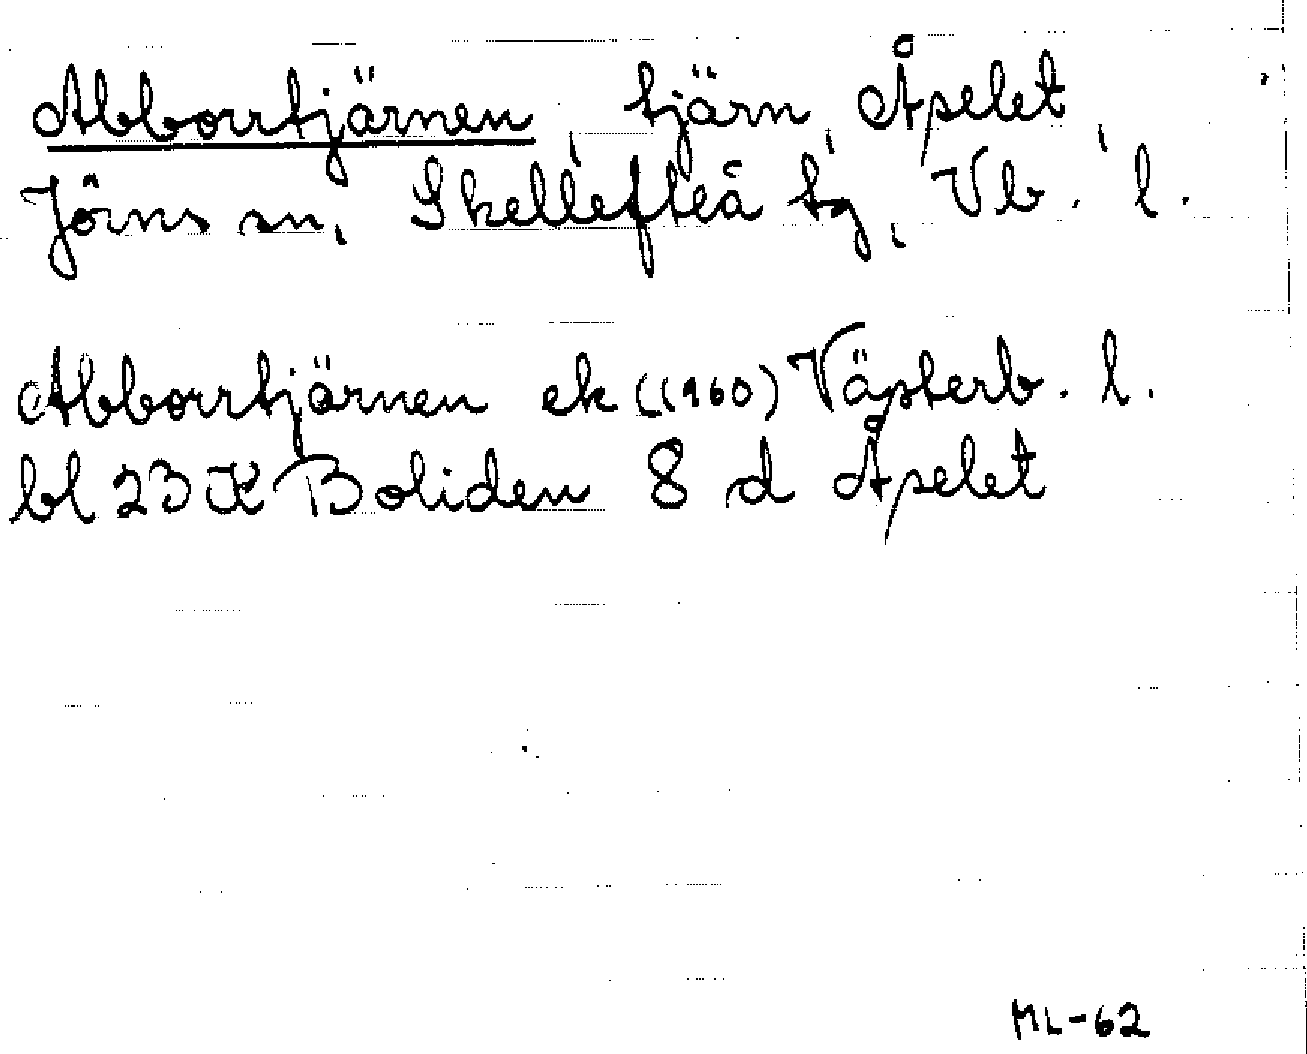 Abborrtjärnen, tjärn, Åpelet,
Jörns sn, Skellefteå tg, Vb. l.
Abborrtjärnen ek ((1960) Västerb. l.
bl 23 K Boliden 8 d Åpelet
ML-62